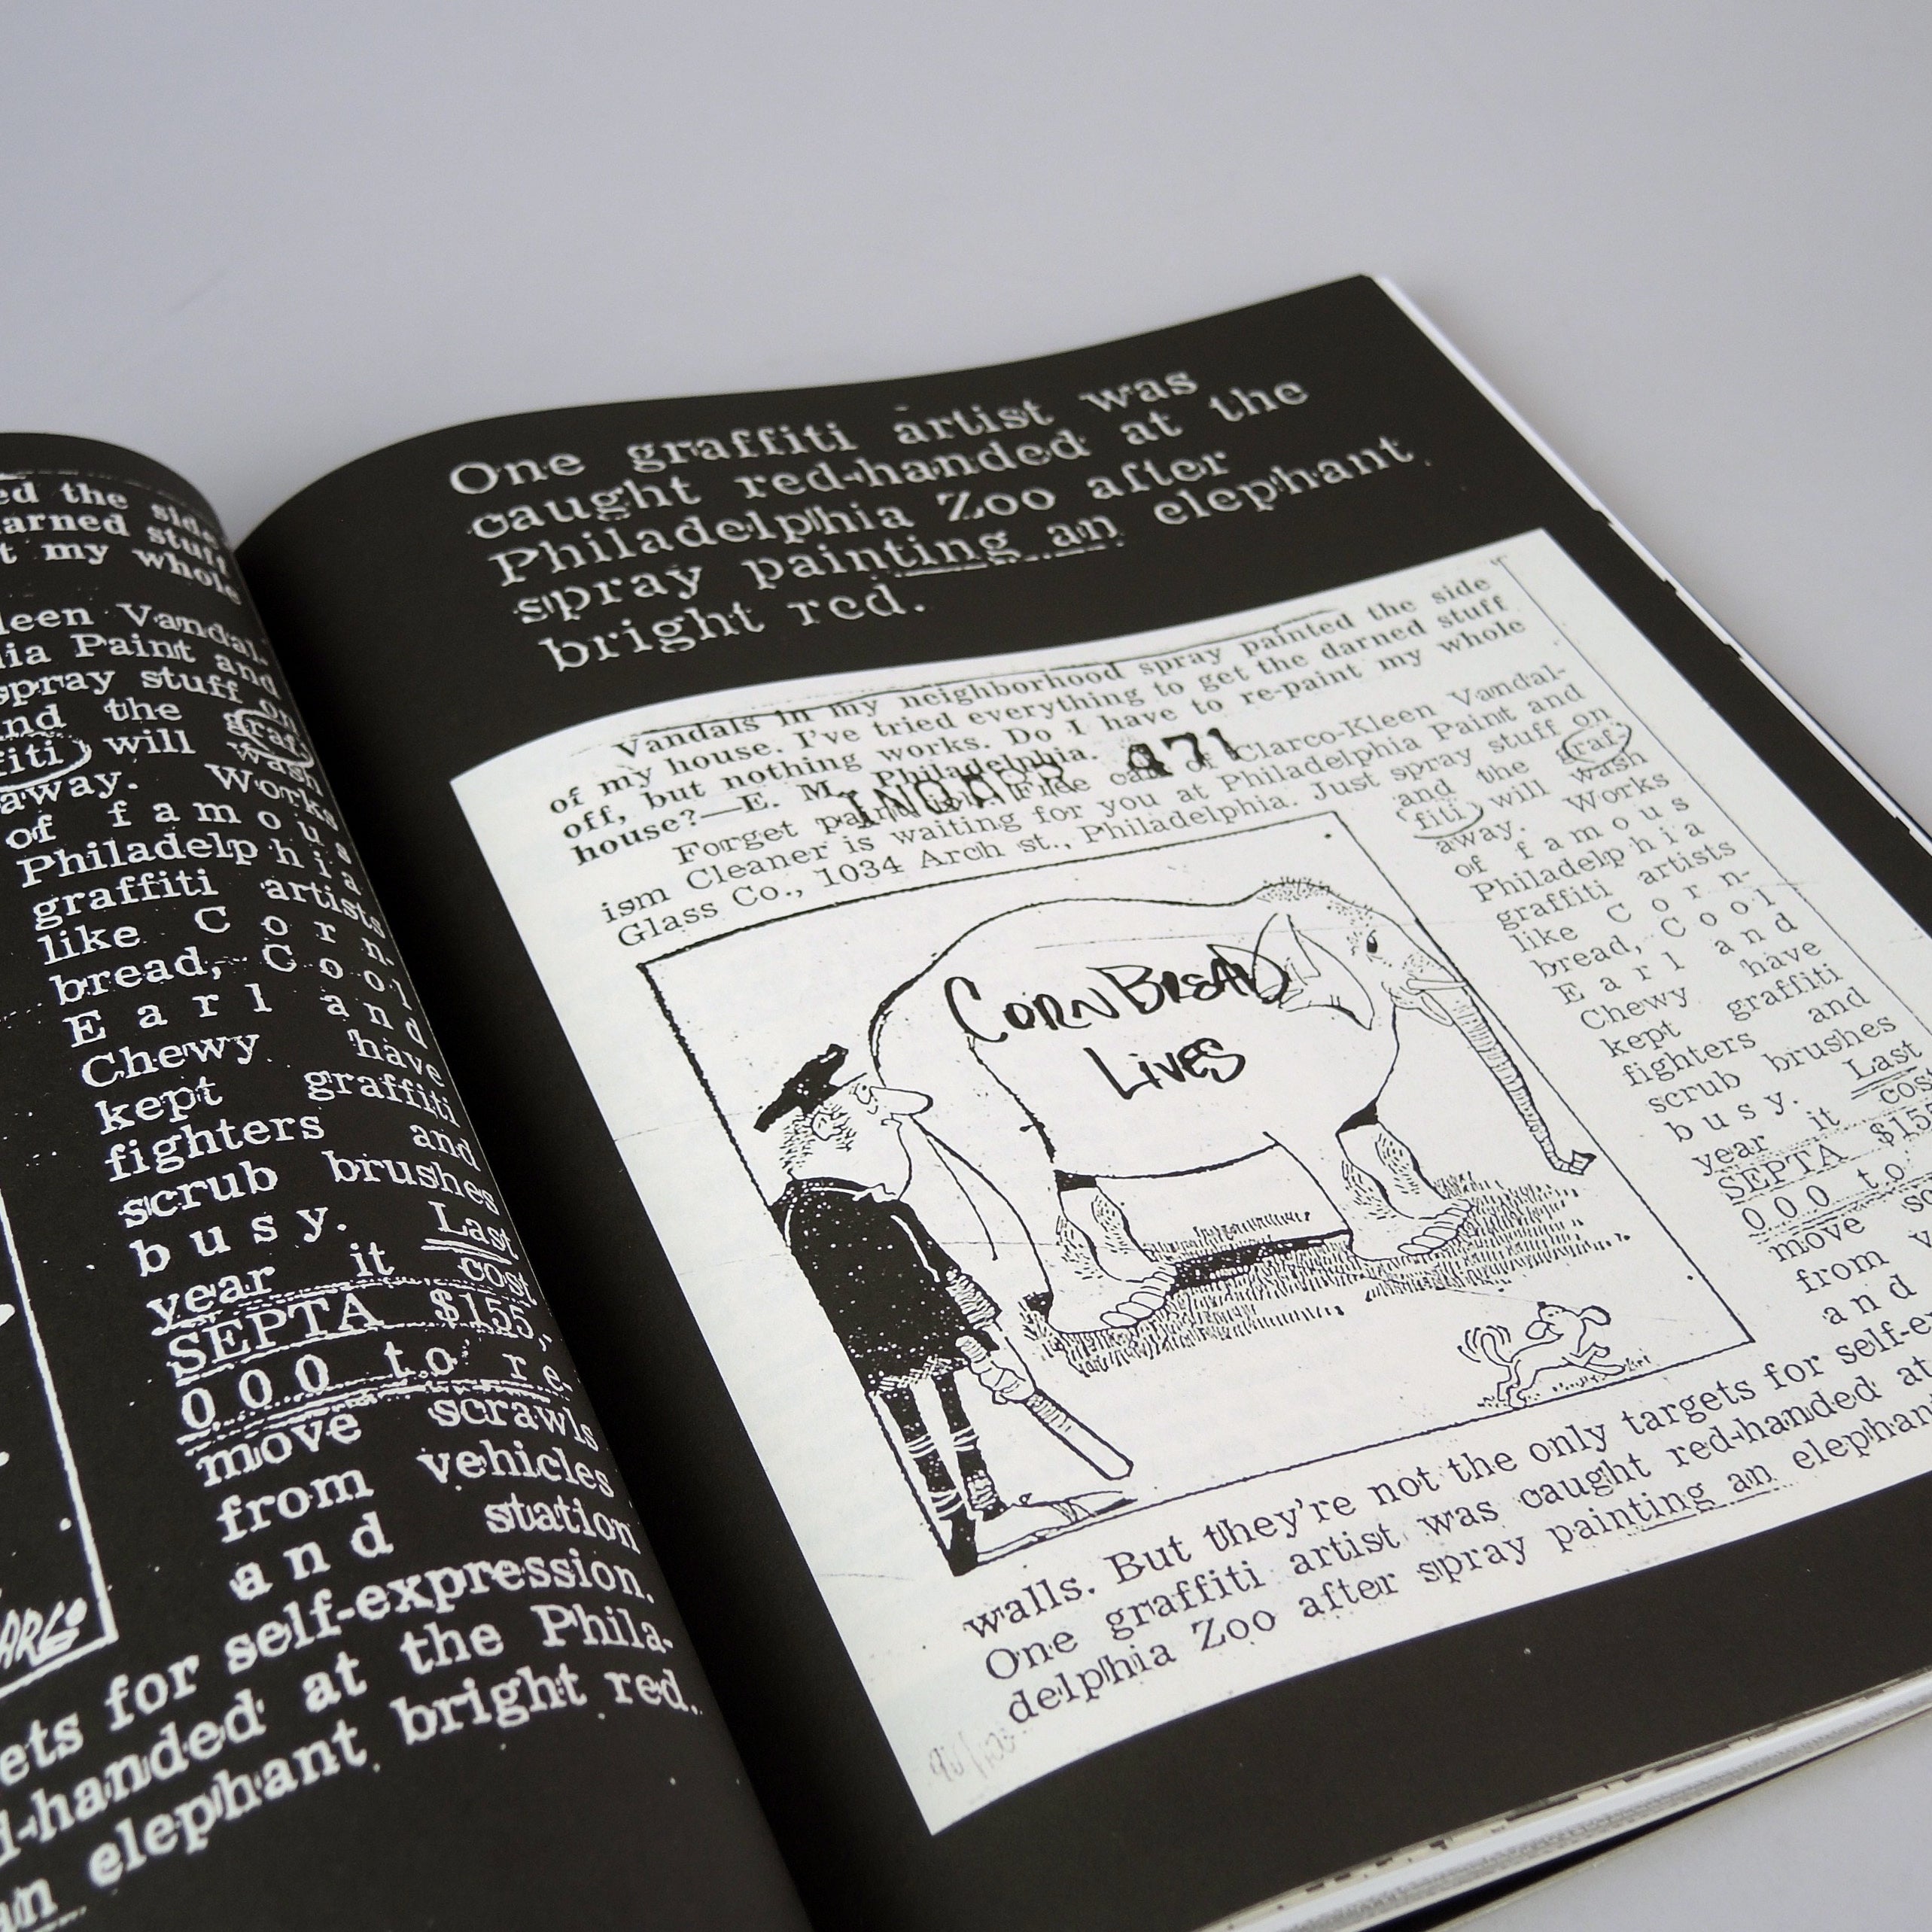 ed the side
arned stuff
t my whole
leen Vandal-
ia Paint and
spray stuff on
and the graf-
fiti will wash
away. Works
of famous
Philadelphia
graffiti artists
like Corn-
bread, Cool
Earl and
Chewy have
kept graffiti
fighters and
scrub brushes
busy. Last
year it cost
SEPTA $155,-
000 to re-
move scrawls
from vehicles
and station
ets for self-expression.
d-handed at the Phila-
an elephant bright red.
One graffiti artist was
caught red-handed at the
Philadelphia Zoo after
spray painting an elephant
bright red.
Vandals in my neighborhood spray painted the side
of my house. I've tried everything to get the darned stuff
off, but nothing works. Do I have to re-paint my whole
house?—E. M., Philadelphia.
971
Forget painting. Free can of Clarco-Kleen Vandal-
ism Cleaner is waiting for you at Philadelphia Paint and
Glass Co., 1034 Arch st., Philadelphia. Just spray stuff on
and the graf-
fiti will wash
away. Works
of famous
Philadelphia
graffiti artists
like Corn-
bread, Cool
Earl and
Chewy have
kept graffiti
fighters and
scrub brushes
busy. Last
year it cost
SEPTA $155
000 to
move
from
and
CORNBREAD
LIVES
walls. But they're not the only targets for self-ex
One graffiti artist was caught red-handed at
delphia Zoo after spray painting an elephan